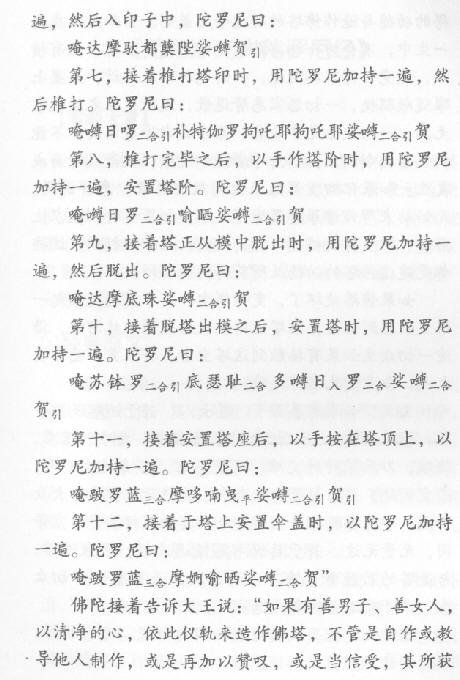 遍，然后入印子中，陀罗尼曰：
唵达摩驮都蘖陛娑嚩贺引
第七，接着椎打塔印时，用陀罗尼加持一遍，然
后椎打。陀罗尼曰：
唵嚩日啰二合引补特伽罗拘吒耶拘吒耶娑嚩二合引贺
第八，椎打完毕之后，以手作塔阶时，用陀罗尼
加持一遍，安置塔阶。陀罗尼曰：
唵嚩日罗二合引喻晒娑嚩二合引贺
第九，接着塔正从模中脱出时，用陀罗尼加持一
遍，然后脱出。陀罗尼曰：
唵达摩底珠娑嚩二合引贺
第十，接着脱塔出模之后，安置塔时，用陀罗尼
加持一遍。陀罗尼曰：
唵苏钵罗二合引底瑟耻二合多嚩日入罗二合娑嚩二合
贺引
第十一，接着安置塔座后，以手按在塔顶上，以
陀罗尼加持一遍。陀罗尼曰：
唵跛罗蓝二合摩哆喃曳平娑嚩二合引贺引
第十二，接着于塔上安置伞盖时，以陀罗尼加持
一遍。陀罗尼曰：
唵跛罗蓝三合摩妠喻晒娑嚩二合引贺”
佛陀接着告诉大王说：“如果有善男子、善女人，
以清净的心，依此仪轨来造作佛塔，不管是自作或教
导他人制作，或是再加以赞叹，或是当信受，其所获